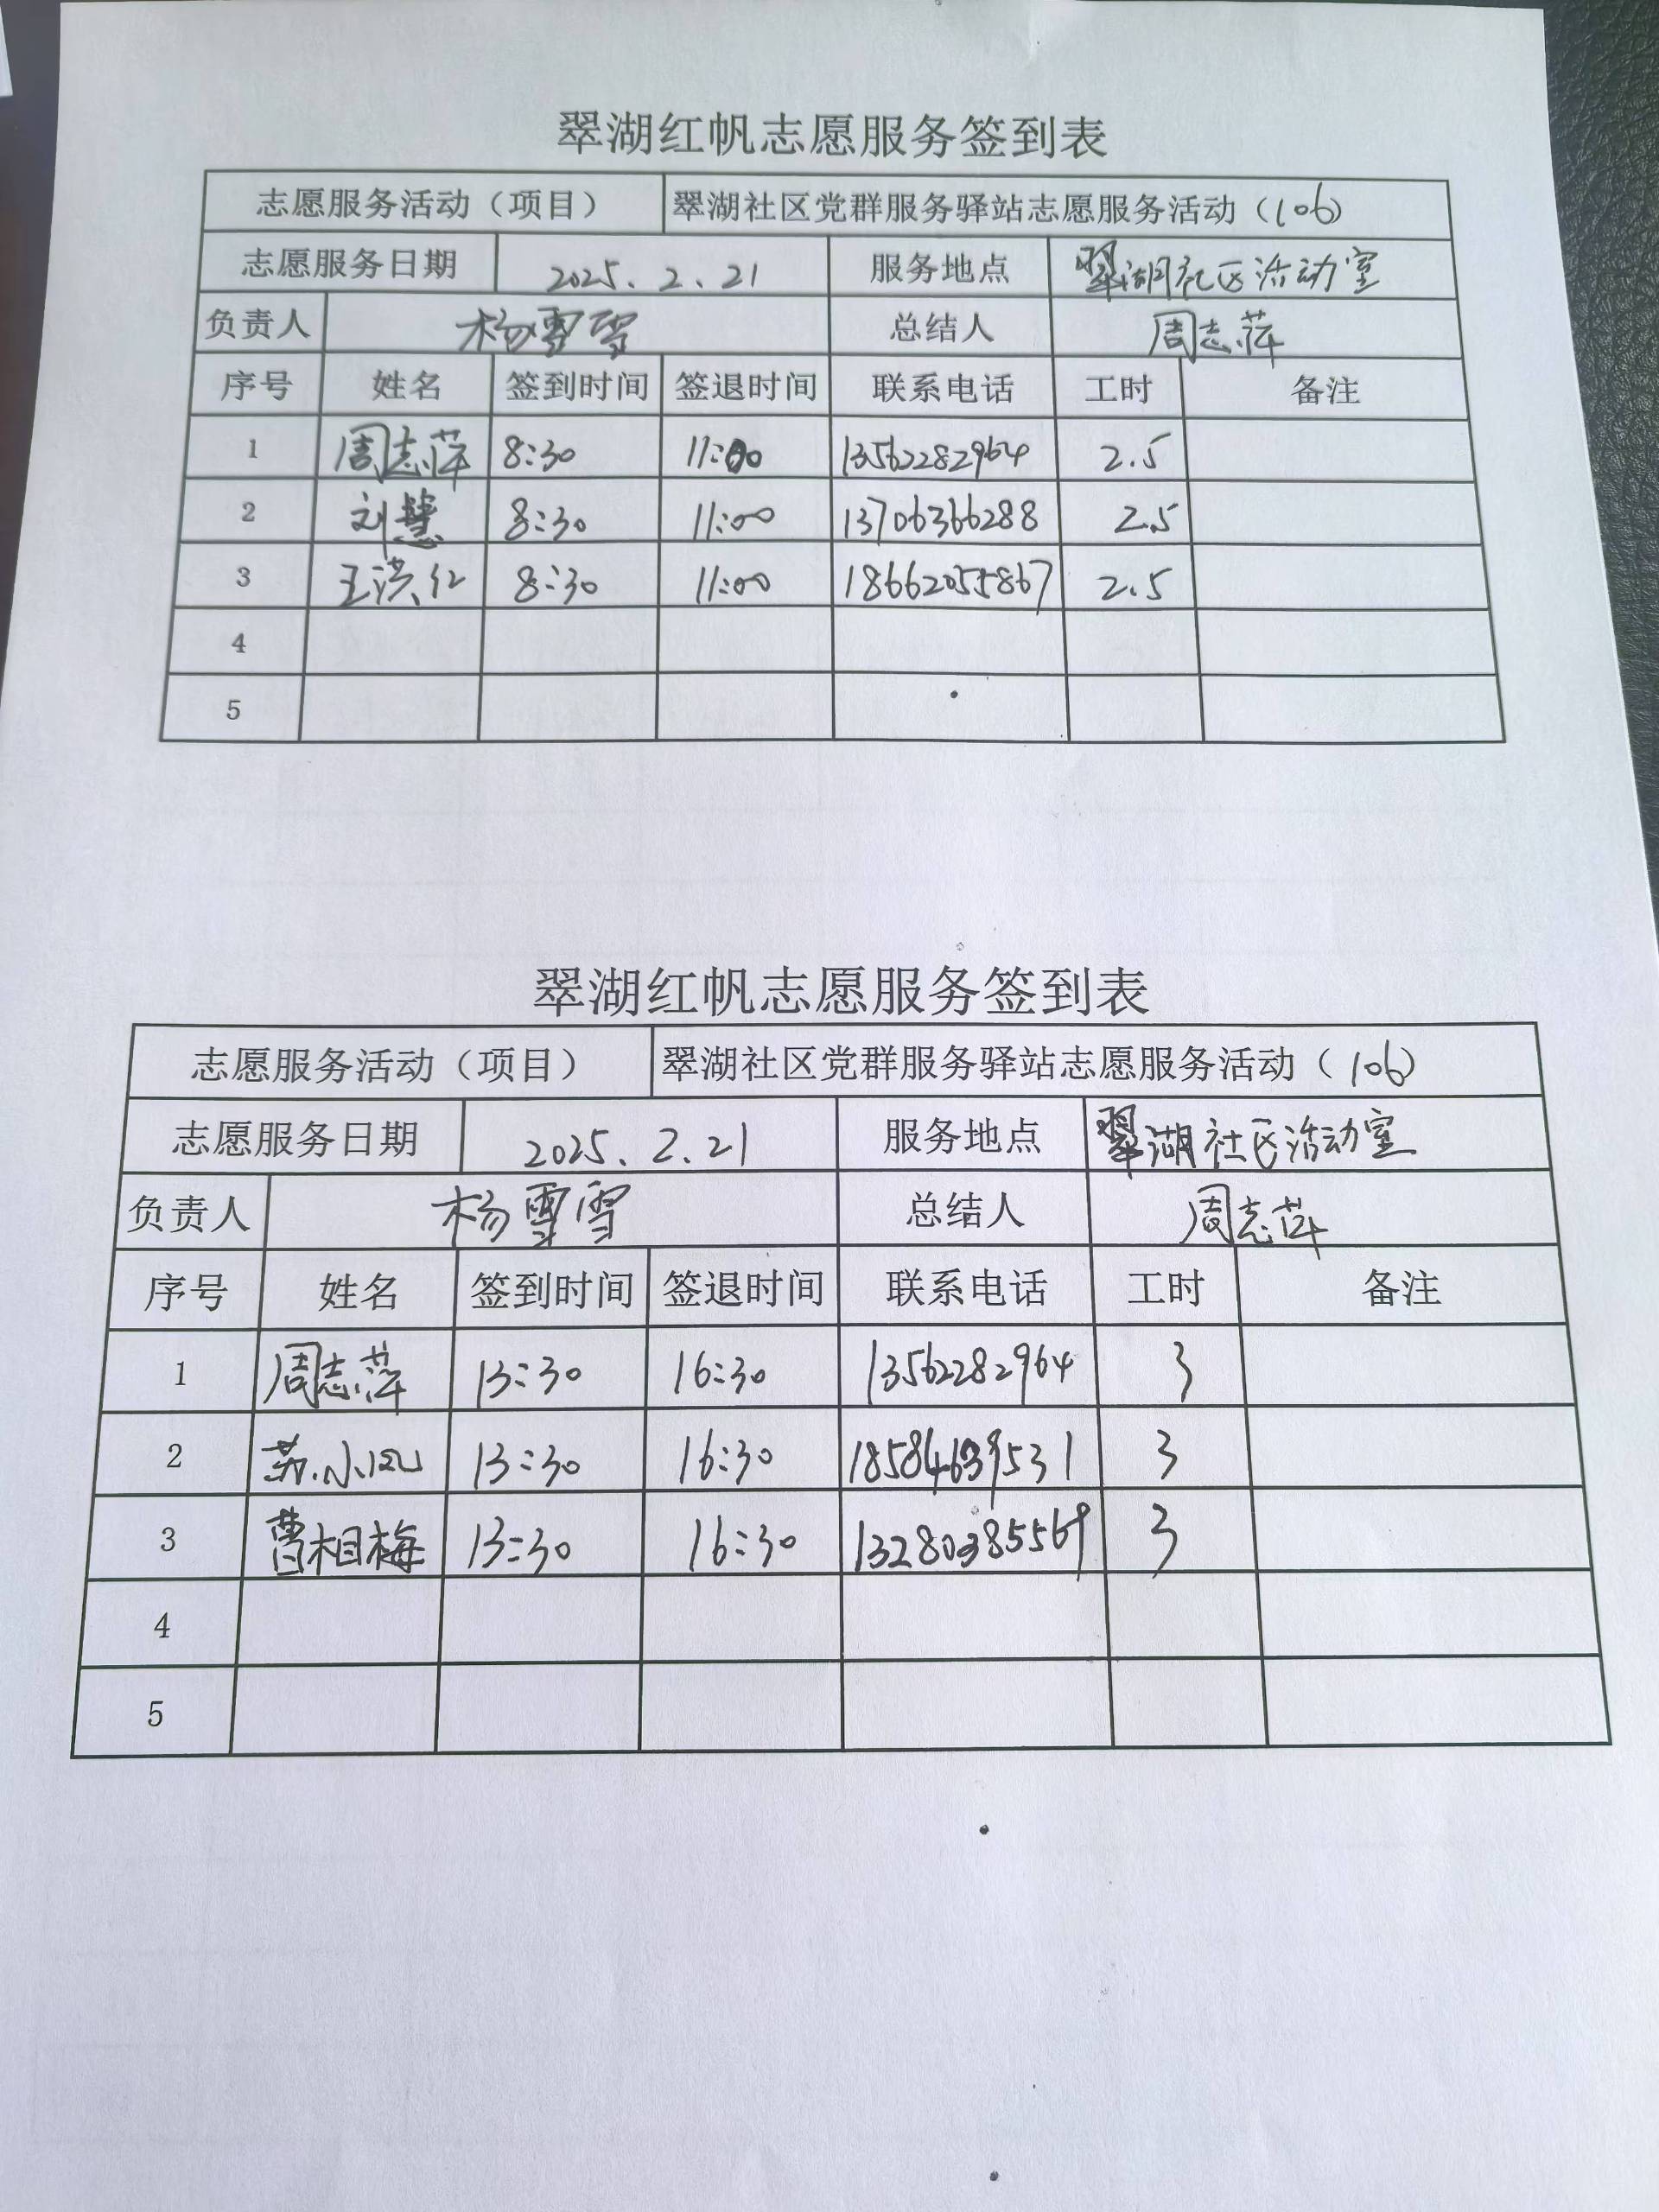 翠湖红帆志愿服务签到表
志愿服务活动（项目） 翠湖社区党群服务驿站志愿服务活动（106）
志愿服务日期 2025.2.21 服务地点 翠湖社区活动室
负责人 杨雪雪 总结人 周志萍
序号 姓名 签到时间 签退时间 联系电话 工时 备注
1 周志萍 8:30 11:00 13562282964 2.5
2 刘慧 8:30 11:00 13706366288 2.5
3 王洪红 8:30 11:00 18662055867 2.5
4
5
翠湖红帆志愿服务签到表
志愿服务活动（项目） 翠湖社区党群服务驿站志愿服务活动（106）
志愿服务日期 2025.2.21 服务地点 翠湖社区活动室
负责人 杨雪雪 总结人 周志萍
序号 姓名 签到时间 签退时间 联系电话 工时 备注
1 周志萍 13:30 16:30 13562282964 3
2 苏小凤 13:30 16:30 3
3 曹相梅 13:30 16:30 13280385569 3
4
5